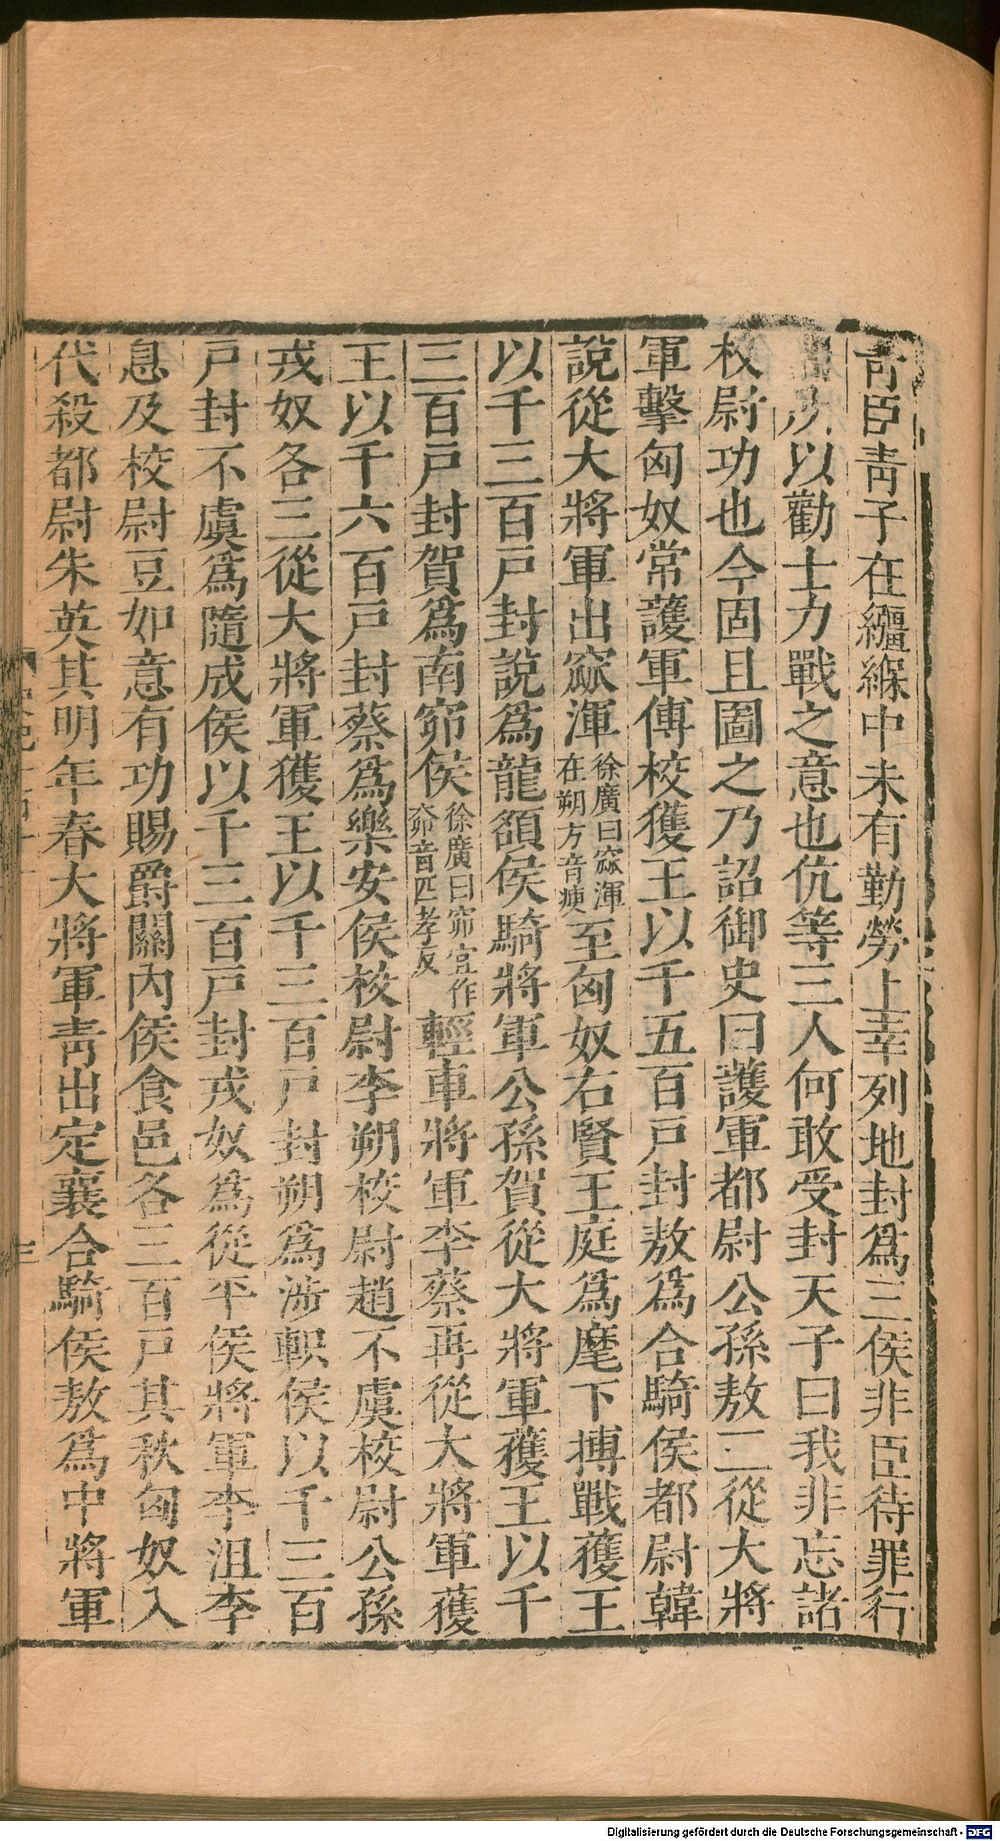 青臣青子在繦緥中未有勤勞上幸列地封爲三侯非臣待罪行
所以勸士力戰之意也伉等三人何敢受封天子曰我非忘諸
校尉功也今固且圖之乃詔御史曰護軍都尉公孫敖三從大將
軍擊匈奴常護軍傅校獲王以千五百戶封敖爲合騎侯都尉韓
說從大將軍出窳渾徐廣曰窳渾在朔方音庾至匈奴右賢王庭爲麾下搏戰獲王
以千三百戶封說爲龍頟侯騎將軍公孫賀從大將軍獲王以千
三百戶封賀爲南窌侯徐廣曰窌宜作奅音匹孝反輕車將軍李蔡再從大將軍獲
王以千六百戶封蔡爲樂安侯校尉李朔校尉趙不虞校尉公孫
戎奴各三從大將軍獲王以千三百戶封朔爲涉軹侯以千三百
戶封不虞爲隨成侯以千三百戶封戎奴爲從平侯將軍李沮李
息及校尉豆如意有功賜爵關內侯食邑各三百戶其秋匈奴入
代殺都尉朱英其明年春大將軍青出定襄合騎侯敖爲中將軍
三
Digitalisierung gefördert durch die Deutsche Forschungsgemeinschaft - DFG